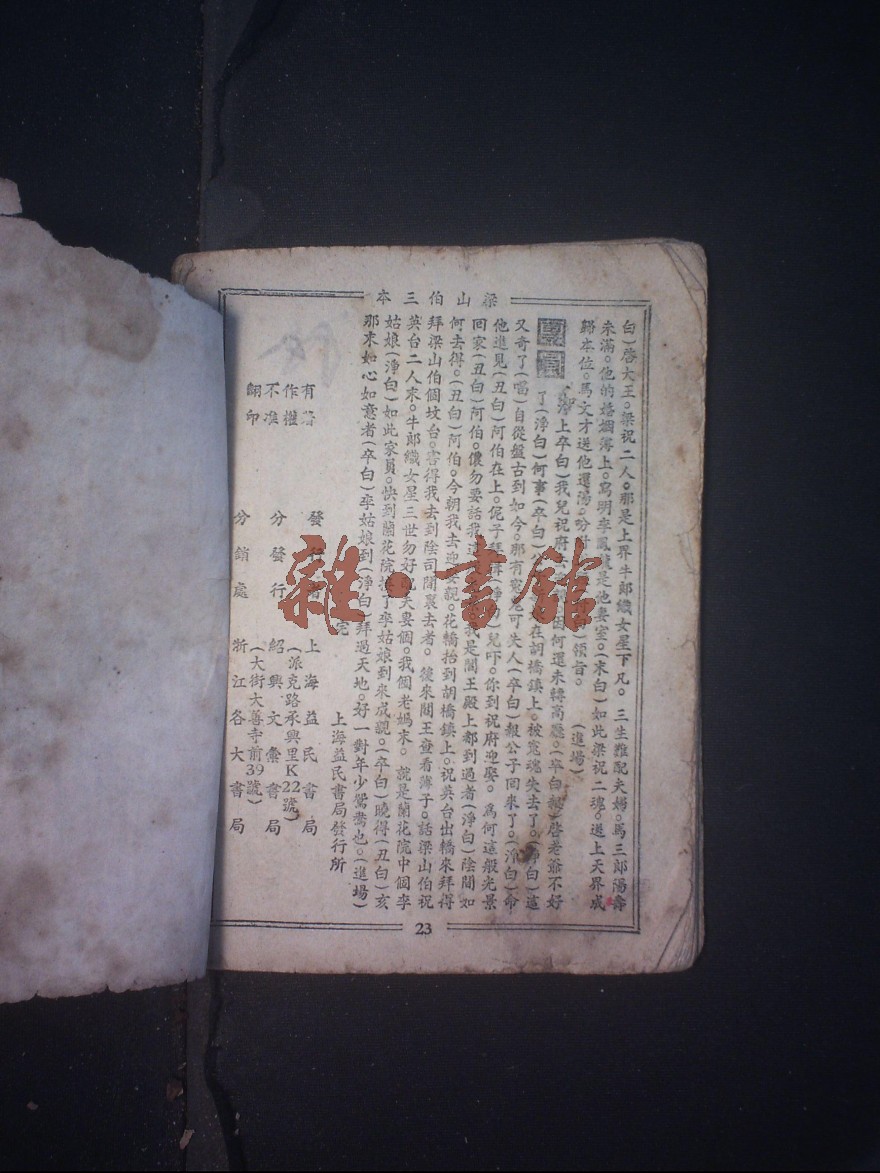 梁山伯三本
白)啓大王。梁祝二人。那是上界牛郎織女星下凡。三生難配夫婦。馬三郎陽壽
未滿。他的婚姻簿上。寫明李鳳是他妻室。(末白)如此梁祝二魂。送上天界成
歸本位。馬文才送他還陽。領旨。(進場)
上卒白)我兒祝府因何還未轉高廳。(卒白)啓老爺不好
了(淨白)何事(卒白)在胡橋鎮上。被冤魂失去了。(淨白)這
又奇了(唱)自從盤古到如今。那有冤鬼可失人(卒白)報公子回來了。(淨白)命
他進見(丑白)阿伯在上。伲子拜揖(淨白)兒吓。你到祝府迎娶。爲何這般光景
回家(丑白)阿伯。儂勿要話我是閻王殿上都到過者(淨白)陰間如
何去得。(丑白)阿伯。今朝我去迎娶親。花轎抬到胡橋鎮上。祝英台出轎來拜得
拜梁山伯個坟台。害得我去到陰司閻裏去者。後來閻王查看簿子。話梁山伯祝
英台二人末。牛郎織女星三世勿好配夫妻個。我個老媽末。就是蘭花院中個李
姑娘(淨白)如此家員。快到蘭花院接了李姑娘到來成親。(卒白)曉得(丑白)亥
那末如心如意者(卒白)李姑娘到(淨白)拜過天地。好一對年少鴛鴦也。(進場)
完
上海益民書局發行所
有著作權
不准翻印
發行者 上海益民書局
(派克路承興里K22號)
分發行 紹興文彙書局
(大街大善寺前39號)
分銷處 浙江各大書局
23
雜·書館